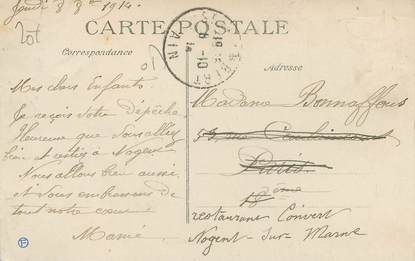 Jeudi 8 8bre 1914.
Lot
CARTE POSTALE
Correspondance
Adresse
AIN
Mes chers Enfants.
Je reçois votre Dépêche
Heureuse que vous alliez
bien et restiez à Nogent
Nous allons bien aussi,
et vous embrassons de
tout notre cœur
Mamé.
Madame Bonnaffous
Paris.
18 ème
restaurant Convert
Nogent-sur-Marne